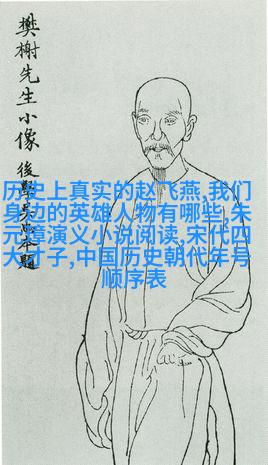 樊榭先生小像
後學
題
历史上真实的赵飞燕,我们
身边的英雄人物有哪些,朱
元璋演义小说阅读,宋代四
大才子,中国历史朝代年号
顺序表